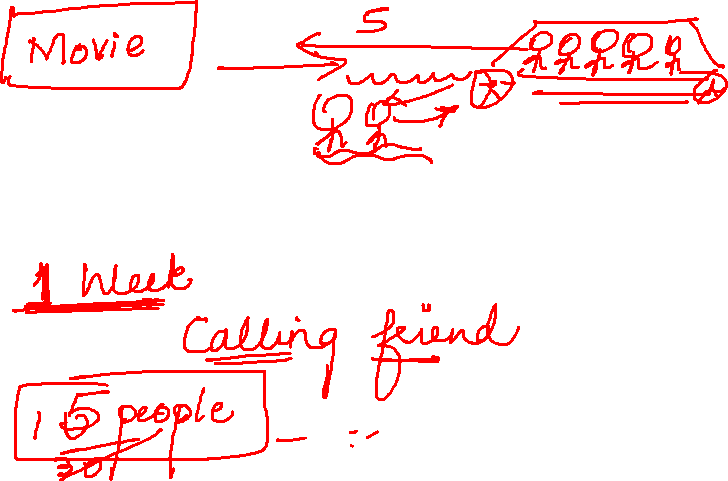 Movie
5
1 week
Calling friend
15 people
30